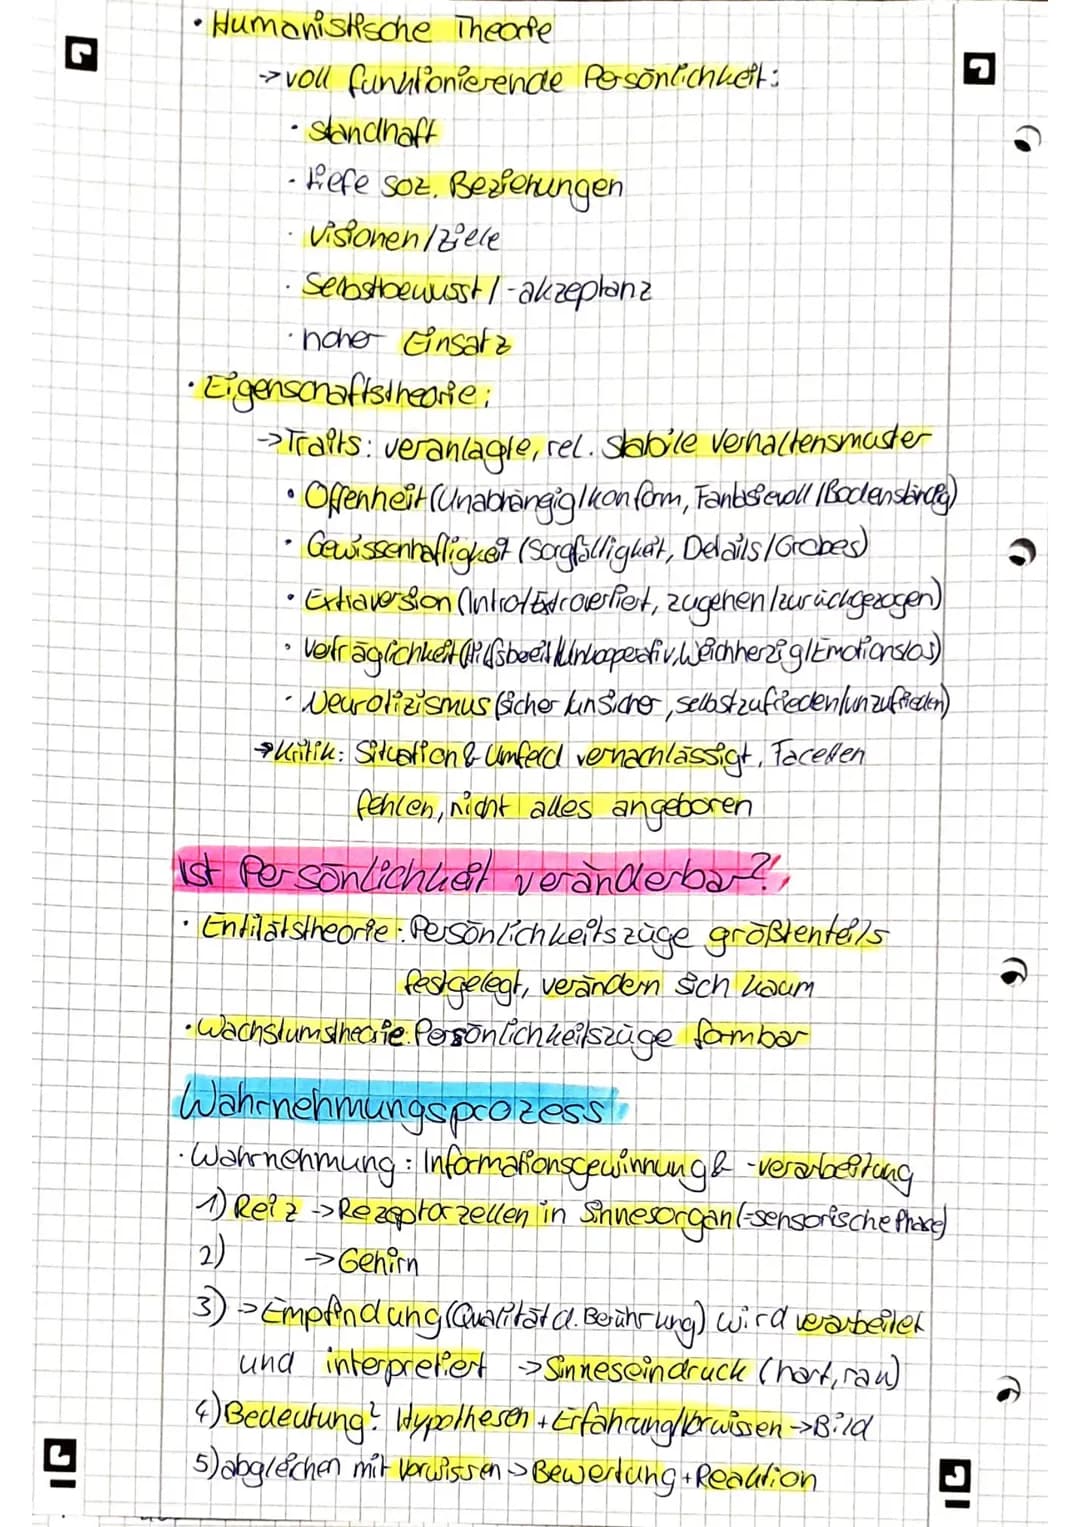 · Humanistische Theorie
-> voll funktionierende Persönlichkeit:
· standhaft
· tiefe soz. Beziehungen
· Visionen/Ziele
· Selbstbewusst/-akzeptanz
· hoher Einsatz
· Eigenschaftstheorie:
-> Traits: veranlagte, rel. stabile Verhaltensmuster
· Offenheit (Unabhängig/konform, Fantasievoll/Bodenständig)
· Gewissenhaftigkeit (Sorgfältigkeit, Details/Grobes)
· Extraversion (Intro/Extrovertiert, zugehen/zurückgezogen)
· Verträglichkeit (Hilfsbereit/Unkooperativ, Weichherzig/Emotionslos)
· Neurotizismus (sicher/unsicher, selbstzufrieden/unzufrieden)
-> Kritik: Situation & Umfeld vernachlässigt, Facetten
fehlen, nicht alles angeboren
Ist Persönlichkeit veränderbar?
· Entitätstheorie: Persönlichkeitszüge größtenteils
festgelegt, verändern sich kaum
· Wachstumstheorie: Persönlichkeitszüge formbar
Wahrnehmungsprozess
· Wahrnehmung: Informationsgewinnung & -verarbeitung
1) Reiz -> Rezeptorzellen in Sinnesorgan (=sensorische Phase)
2) -> Gehirn
3) -> Empfindung (Qualität d. Berührung) wird verarbeitet
und interpretiert -> Sinneseindruck (hart, rau)
4) Bedeutung? Hypothesen + Erfahrung/Vorwissen -> Bild
5) abgleichen mit Vorwissen -> Bewertung + Reaktion